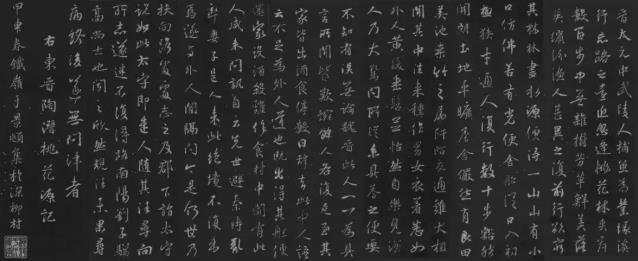 晉太元中武陵人捕魚為業緣溪
行忘路之遠近忽逢桃花林夾岸
數百步中無雜樹芳草鮮美落
英繽紛漁人甚異之復前行欲窮
其林林盡水源便得一山山有小
口彷彿若有光便舍船從口入初
極狹才通人復行數十步豁然
開朗土地平曠屋舍儼然有良田
美池桑竹之屬阡陌交通雞犬相
聞其中往來種作男女衣著悉如
外人黃髮垂髫並怡然自樂見漁
人乃大驚問所從來具答之便要
不知有漢無論魏晉此人一一為具
言所聞皆歎惋餘人各復延至其
家皆出酒食停數日辭去此中人語
云不足為外人道也既出得其船便
還家設酒殺雞作食村中聞有此
人咸來問訊自云先世避秦時亂
率妻子邑人來此絕境不復出
焉遂與外人間隔問今是何世乃
扶向路處處誌之及郡下詣太守
說如此太守即遣人隨其往尋向
所誌遂迷不復得路南陽劉子驥
高尚士也聞之欣然規往未果尋
病終後遂無問津者
右東晉陶潛桃花源記
甲申春鐵嶺于景集於深柳村